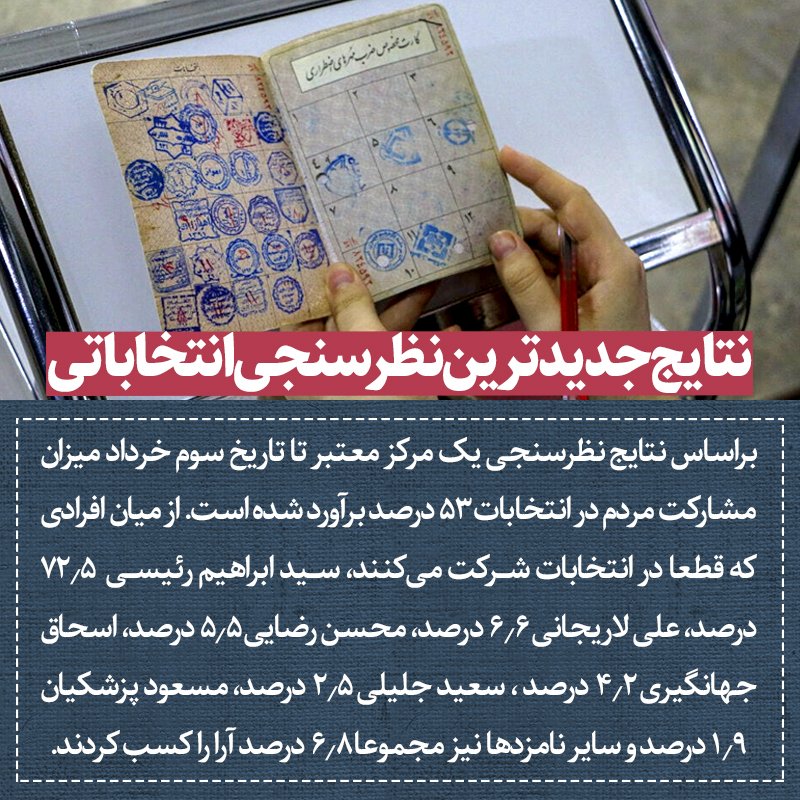 انتخابات
کارت مخصوص ضریب مهرهای اضطراری
۱
۲
۳
۴
۵
۶
۷
۸
۹
۱۰
۱۱
۱۲
نتایج جدیدترین نظرسنجی انتخاباتی
براساس نتایج نظرسنجی یک مرکز معتبر تا تاریخ سوم خرداد میزان
مشارکت مردم در انتخابات ۵۳ درصد برآورد شده است. از میان افرادی
که قطعا در انتخابات شرکت می‌کنند، سید ابراهیم رئیسی ۷۲٫۵
درصد، علی لاریجانی ۶٫۶ درصد، محسن رضایی ۵٫۵ درصد، اسحاق
جهانگیری ۴٫۲ درصد، سعید جلیلی ۲٫۵ درصد، مسعود پزشکیان
۱٫۹ درصد و سایر نامزدها نیز مجموعا ۶٫۸ درصد آرا را کسب کردند.